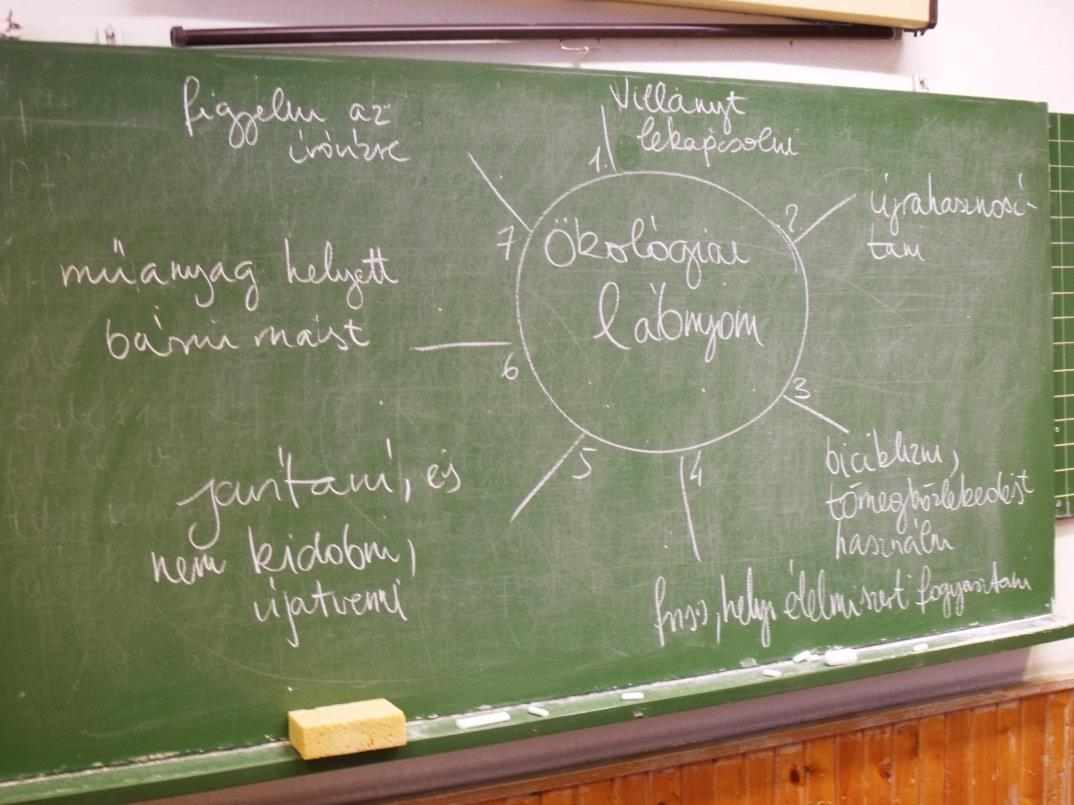 Ökológiai
lábnyom
1.
Villanyt
lekapcsolni
2
újrahasznosí-
tani
3
biciklizni,
tömegközlekedést
használni
4
friss, helyi élelmiszert fogyasztani
5
javítani, és
nem kidobni,
újatvenni
6
műanyag helyett
bármi mást
7
figyelni az
ivóvízre